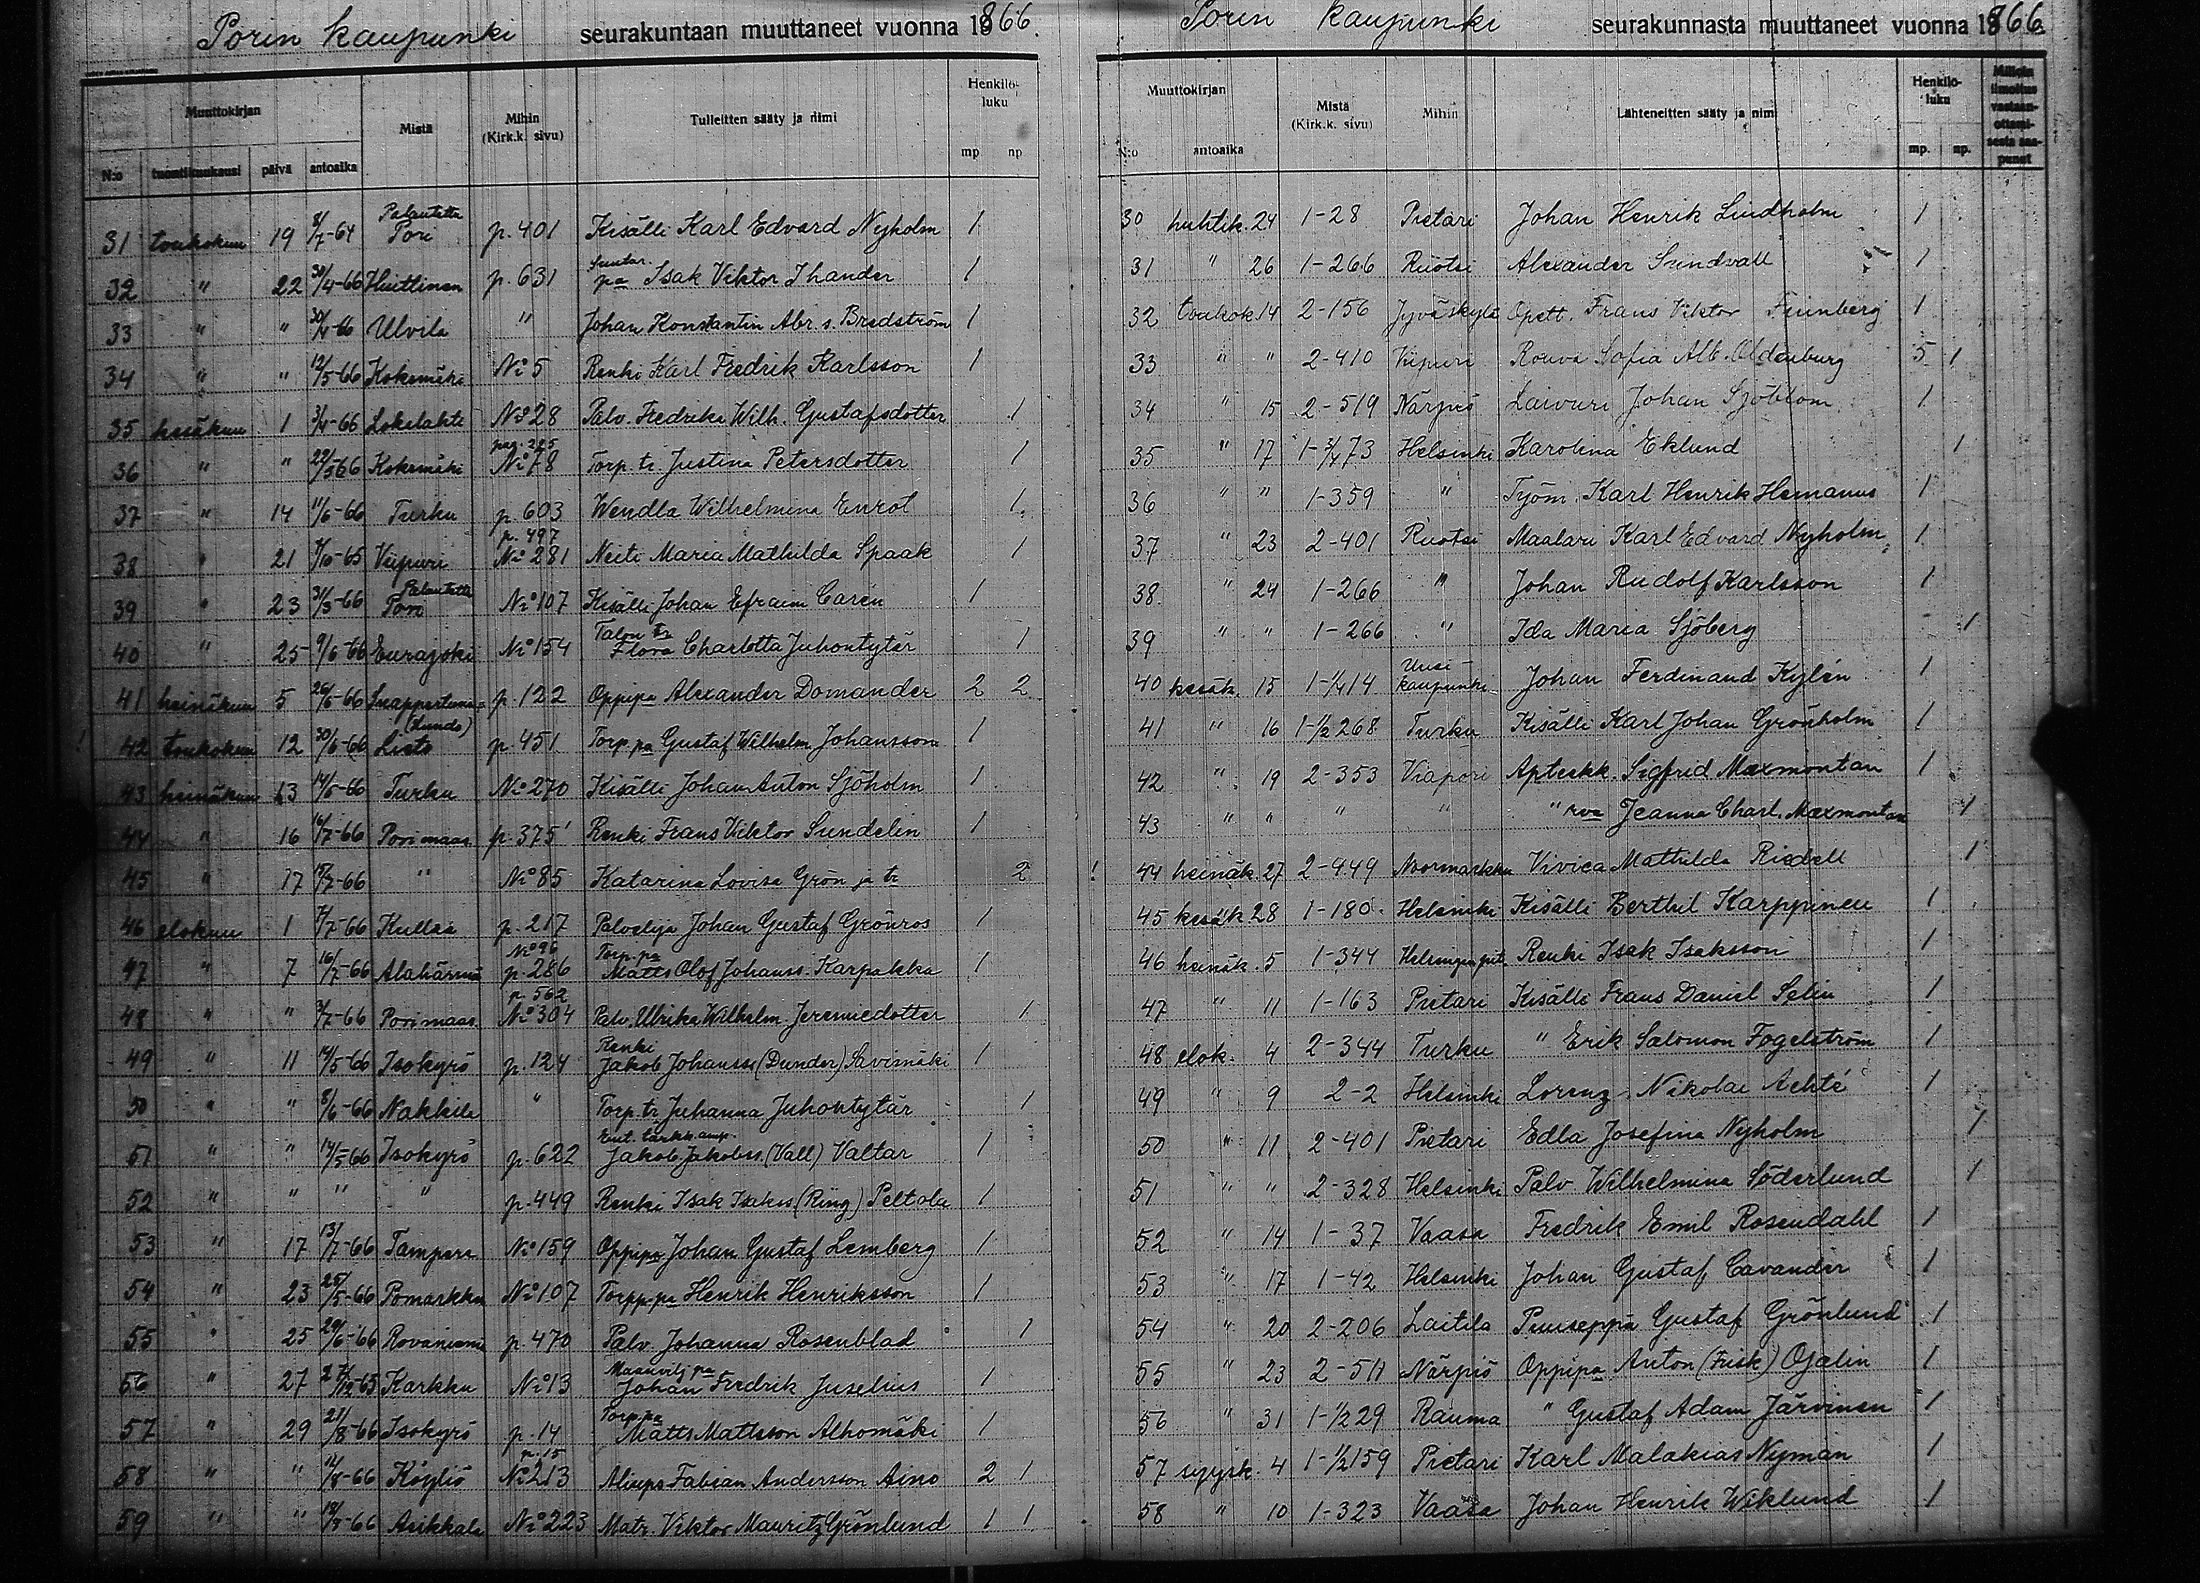 Porin kaupunki seurakuntaan muuttaneet vuonna 1866.
Muuttokirjan Mistä Mihin (Kirk.k. sivu) Tulleitten sääty ja nimi Henkilöluku
N:o tuontikuukausi päivä antoaika mp. np.
31 toukokuu 19 8/7-64 Palautettu Pori p. 401 Kisälli Karl Edvard Nyholm 1
32 " 22 30/4-66 Huittinen p. 631 Suutar. pa Isak Viktor Ihander 1
33 " " 30/4-66 Ulvila " Johan Konstantin Abr. s. Bredström 1
34 " " 12/5-66 Kokemäki No 5 Renki Karl Fredrik Karlsson 1
35 kesäkuu 1 3/4-66 Lokalahti No 28 Palv. Fredrika Wilh. Gustafsdotter 1
36 " " 22/5-66 Kokemäki pag. 225 No 78 Torp. tr Justina Petersdotter 1
37 " 14 11/6-66 Turku p. 603 Wendla Wilhelmina Enrot 1
38 " 21 /10-65 Viipuri p. 497 No 281 Neiti Maria Mathilda Spaak 1
39 " 23 31/3-66 Palautettu Pori No 107 Kisälli Johan Efraim Carén 1
40 " 25 9/6-66 Eurajoki No 154 Talon tr Flora Charlotta Juhontytär 1
41 heinäkuu 5 26/6-66 Snappertuna p. 122 Oppipa Alexander Domander 2 2
! 42 toukokuu 12 30/6-66 (Lundo) Lieto p. 451 Torp. pa Gustaf Wilhelm Johansson 1
43 heinäkuu 13 14/6-66 Turku No 270 Kisälli Johan Anton Sjöholm 1
44 " 16 16/7-66 Pori maas. p. 375 Renki Frans Viktor Sundelin 1
45 " 17 15/7-66 " No 85 Katarina Lovisa Grön ja tr 2
46 elokuu 1 7/7-66 Kullaa p. 217 Palvelija Johan Gustaf Grönros 1
47 " 7 16/7-66 Alahärmä No 96 p. 286 Torp. pa Matts Olof Johanss. Karpakka 1
48 " " 3/7-66 Pori maas. p. 562 No 304 Palv. Ulrika Wilhelm. Jeremiedotter 1
49 " 11 14/5-66 Isokyrö p. 124 Renki Jakob Johanss (Dunder) Savimäki 1
50 " " 8/6-66 Nakkila " Torp. tr Juhanna Juhontytär 1
51 " " 14/5-66 Isokyrö p. 622 Ent. tarkk. amp. Jakob Jakobss. (Vall) Valtar 1
52 " " " " p. 449 Renki Isak Isakss (Ring) Peltola 1
53 " 17 13/7-66 Tampere No 159 Oppipa Johan Gustaf Lemberg 1
54 " 23 25/5-66 Pomarkku No 107 Torpp. pa Henrik Henriksson 1
55 " 25 29/6-66 Rovaniemi p. 470 Palv Johanna Rosenblad 1
56 " 27 /12-65 Karkku No 13 Maanvilj pa Johan Fredrik Juselius 1
57 " 29 21/8-66 Isokyrö p. 14 Torp. pa Matts Mattsson Alhomäki 1
58 " " 11/8-66 Köyliö p. 15 No 213 Aliups Fabian Andersson Aino 2 1
59 " " 18/8-66 Asikkala No 223 Matr. Viktor Mauritz Grönlund 1 1
Porin kaupunki seurakunnasta muuttaneet vuonna 1866
Muuttokirjan Mistä (Kirk.k. sivu) Mihin Lähteneitten sääty ja nimi Henkilöluku Milloin ilmoitus vastaanottamisesta saapunut
N:o antoaika mp. np.
30 huhtik. 24 1-28 Pietari Johan Henrik Lindholm 1
31 " 26 1-266 Ruotsi Alexander Sundvall 1
32 toukok 14 2-156 Jyväskylä Opett. Frans Viktor Finnberg 1
33 " " 2-410 Viipuri Rouva Sofia Alb. Oldenburg 5 1
34 " 15 2-519 Närpiö Laivuri Johan Sjöblom 1
35 " 17 1-3/4 73 Helsinki Karolina Eklund 1
36 " " 1-359 " Työm. Karl Henrik Hemanus 1
37 " 23 2-401 Ruotsi Maalari Karl Edvard Nyholm 1
38 " 24 1-266 " Johan Rudolf Karlsson 1
39 " " 1-266 " Ida Maria Sjöberg 1
40 kesäk. 15 1-1/4 14 Uusikaupunki Johan Ferdinand Kylén 1
41 " 16 1-1/2 268 Turku Kisälli Karl Johan Grönholm 1
42 " 19 2-353 Viapori Apteekk. Sigfrid Maxmontan 1
43 " " " " " rva Jeanna Charl. Maxmontan 1
! 44 heinäk. 27 2-449 Noormarkku Vivica Mathilda Riedell 1
45 kesäk 28 1-180 Helsinki Kisälli Berthil Karppinen 1
46 heinäk. 5 1-344 Helsingin pit. Renki Isak Isaksson 1
47 " 11 1-163 Pietari Kisälli Frans Daniel Selin 1
48 elok. 4 2-344 Turku " Erik Salomon Fogelström 1
49 " 9 2-2 Helsinki Lorenz Nikolai Achté 1
50 " 11 2-401 Pietari Edla Josefina Nyholm 1
51 " " 2-328 Helsinki Palv Wilhelmina Söderlund 1
52 " 14 1-37 Vaasa Fredrik Emil Rosendahl 1
53 " 17 1-42 Helsinki Johan Gustaf Cavander 1
54 " 20 2-206 Laitila Puuseppä Gustaf Grönlund 1
55 " 23 2-511 Närpiö Oppipa Anton (Frisk) Ojalin 1
56 " 31 1-1/2 29 Rauma " Gustaf Adam Järvinen 1
57 syysk. 4 1-1/2 159 Pietari Karl Malakias Nyman 1
58 " 10 1-323 Vaasa Johan Henrik Wiklund 1